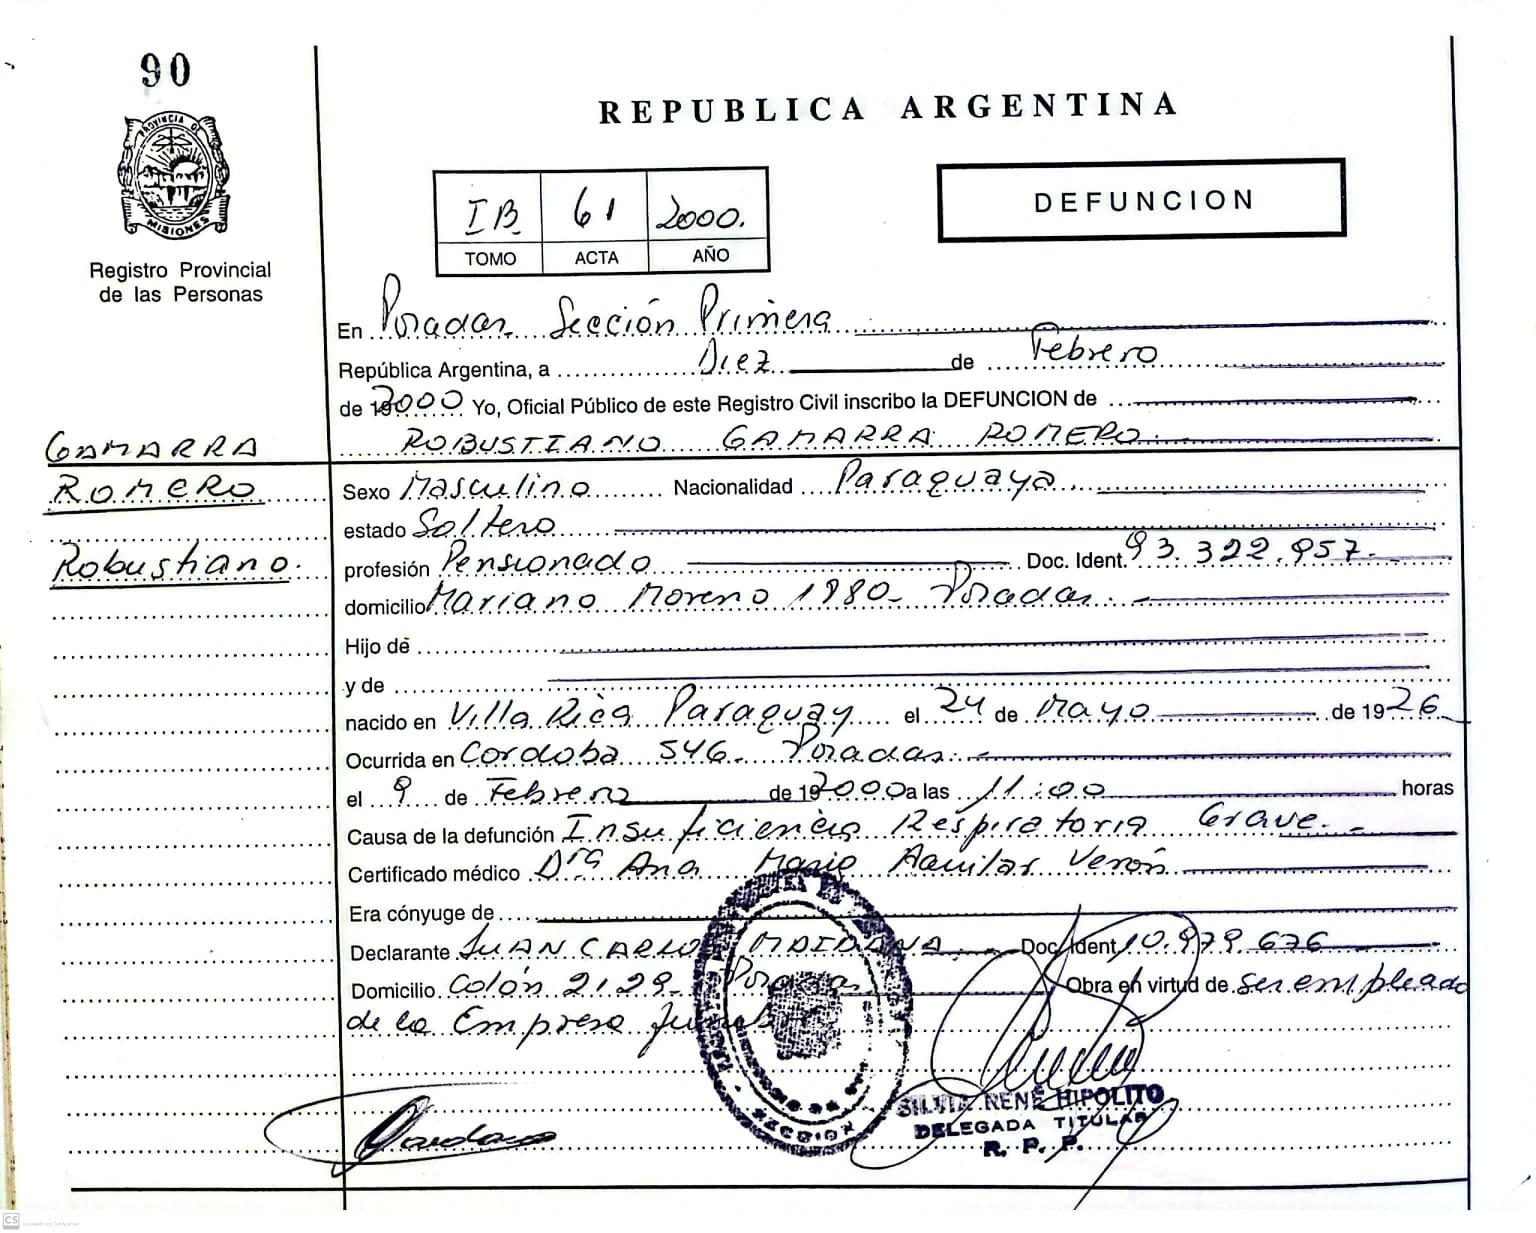 90
PROVINCIA DE
MISIONES
Registro Provincial
de las Personas
REPUBLICA ARGENTINA
IB 61 2000.
TOMO ACTA AÑO
DEFUNCION
En Posadas Sección Primera
República Argentina, a Diez de Febrero
de 2000 Yo, Oficial Público de este Registro Civil inscribo la DEFUNCION de
ROBUSTIANO GAMARRA ROMERO
GAMARRA
ROMERO
Robustiano.
Sexo Masculino Nacionalidad Paraguaya
estado Soltero
profesión Pensionado Doc. Ident. 93.322.957.-
domicilio Mariano Moreno 1980- Posadas.-
Hijo de
y de
nacido en Villa Rica Paraguay el 24 de Mayo de 1926
Ocurrida en Cordoba 546- Posadas.-
el 9 de Febrero de 2000 a las 11:00 horas
Causa de la defunción Insuficiencia Respiratoria Grave.-
Certificado médico Drª Ana Maria Aguilar Verón
Era cónyuge de
Declarante JUAN CARLOS MAIDANA.- Doc. Ident 10.979.676
Domicilio Colón 2129- Posadas Obra en virtud de ser empleado
de la Empresa funebre
SECCION
SILVIA RENÉ HIPOLITO
DELEGADA TITULAR
R. P. P.
CS Escaneado con CamScanner